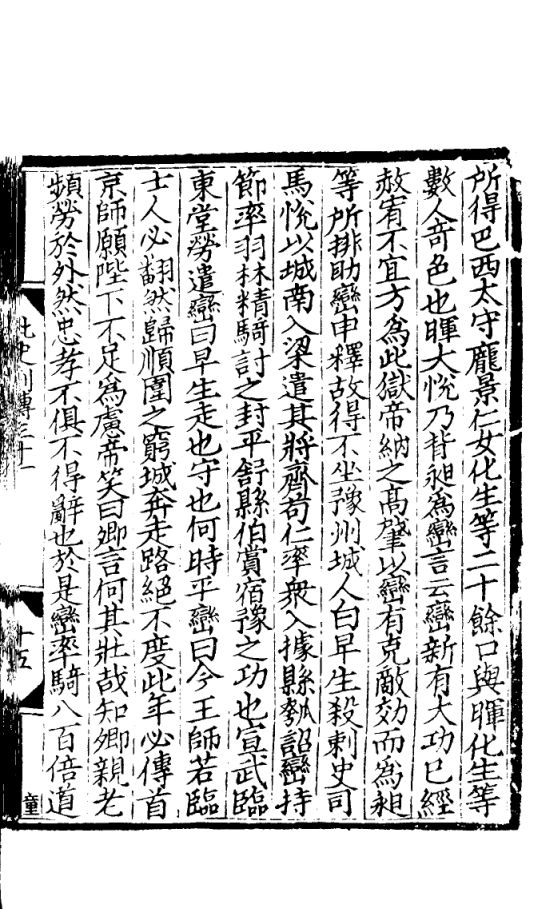 所得巴西太守龐景仁女化生等二十餘口與暉化生等
數人奇色也暉大悅乃背昶為巒言云巒新有大功已經
赦宥不宜方為此獄帝納之高肇以巒有克敵効而為昶
等所排助巒申釋故得不坐豫州城人白早生殺刺史司
馬悅以城南入梁遣其將齊茍仁率衆入據縣瓠詔巒持
節率羽林精騎討之封平舒縣伯賞宿豫之功也宣武臨
東堂勞遣巒曰早生走也守也何時平巒曰今王師若臨
士人必翻然歸順圍之窮城奔走路絕不度此年必傳首
京師願陛下不足為慮帝笑曰卿言何其壯哉知卿親老
頻勞於外然忠孝不俱不得辭也於是巒率騎八百倍道
北史列傳三十一
十五
童